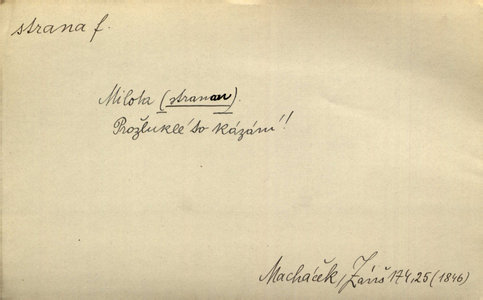 strana f.
Milota (stranou).
Prožluklé to kázání!
Macháček, Záviš 174,25 (1846)